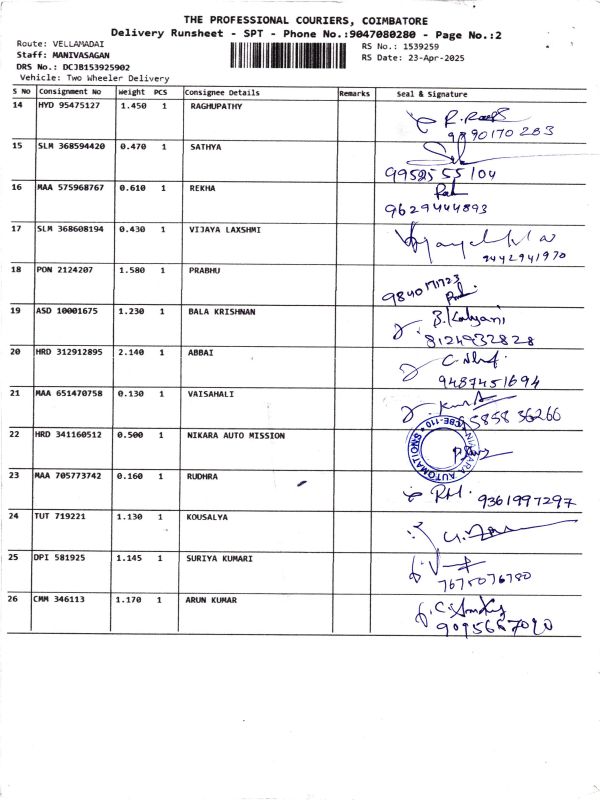 THE PROFESSIONAL COURIERS, COIMBATORE
Delivery Runsheet - SPT - Phone No.:9047080280 - Page No.:2
Route: VELLAMADAI
Staff: MANIVASAGAN
DRS No.: DCJB153925902
Vehicle: Two Wheeler Delivery
RS No.: 1539259
RS Date: 23-Apr-2025
S No Consignment No Weight PCS Consignee Details Remarks Seal & Signature
14 HYD 95475127 1.450 1 RAGHUPATHY
9890170283
15 SLM 368594420 0.470 1 SATHYA
9952555104
16 MAA 575968767 0.610 1 REKHA
9629444893
17 SLM 368608194 0.430 1 VIJAYA LAXSHMI
9442941970
18 PON 2124207 1.580 1 PRABHU
19 ASD 10001675 1.230 1 BALA KRISHNAN
B. Kalyani
8124932828
20 HRD 312912895 2.140 1 ABBAI
9487451694
21 MAA 651470758 0.130 1 VAISAHALI
22 HRD 341160512 0.500 1 NIKARA AUTO MISSION
CBE-110
23 MAA 705773742 0.160 1 RUDHRA
9361997297
24 TUT 719221 1.130 1 KOUSALYA
25 DPI 581925 1.145 1 SURIYA KUMARI
7675076780
26 CMM 346113 1.170 1 ARUN KUMAR